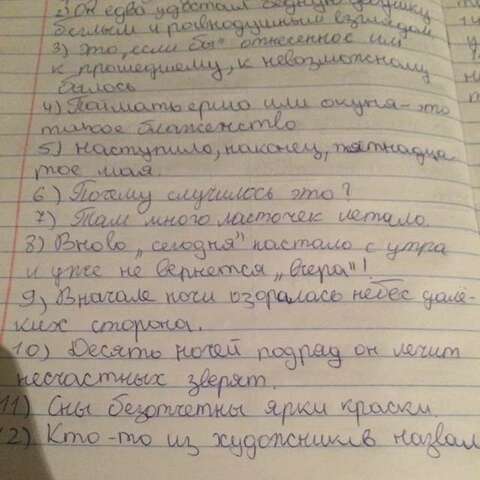 2) Он едва удостоил бедную девушку
беглым и равнодушным взглядом
3) Это „если бы" отнесенное им
к прошедшему, к невозможному
былось
4) Поймать ерша или окуня - это
такое блаженство
5) Наступило, наконец, пятнадца
тое мая.
6) Почему случилось это?
7) Там много ласточек летало.
8) Вновь „сегодня" настало с утра
и уже не вернется „вчера"!
9) Вначале ночи озоралась небес далё-
ких сторона.
10) Десять ночей подряд он лечит
несчастных зверят.
11) Сны безотчетны ярки краски.
12) Кто-то из художников назвал